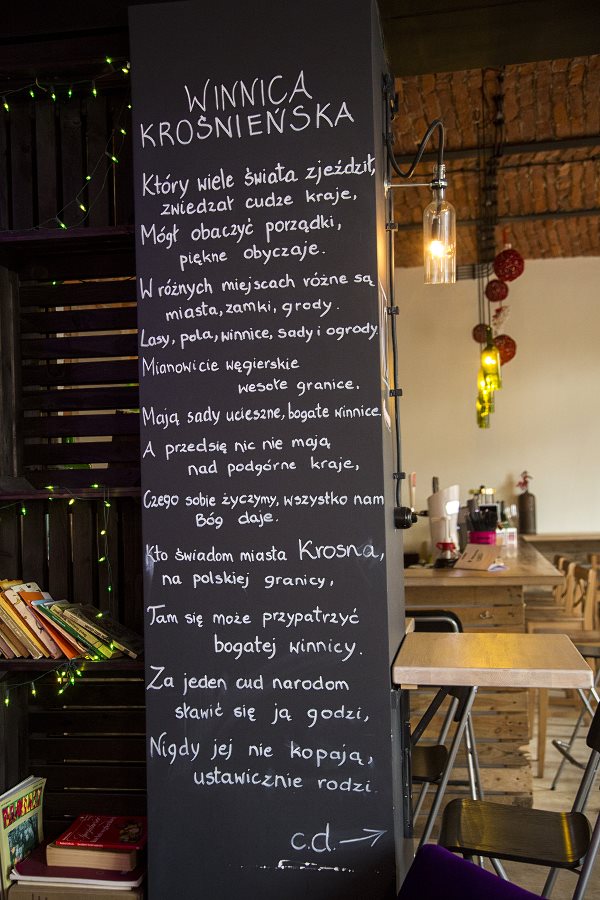 WINNICA
KROŚNIEŃSKA
Który wiele świata zjeździł,
zwiedzał cudze kraje,
Mógł obaczyć porządki,
piękne obyczaje.
W różnych miejscach różne są
miasta, zamki, grody.
Lasy, pola, winnice, sady i ogrody
Mianowicie węgierskie
wesołe granice.
Mają sady ucieszne, bogate winnice.
A przedsię nic nie mają
nad podgórne kraje,
Czego sobie życzymy, wszystko nam
Bóg daje.
Kto świadom miasta Krosna,
na polskiej granicy,
Tam się może przypatrzyć
bogatej winnicy.
Za jeden cud narodom
sławić się ją godzi,
Nigdy jej nie kopają,
ustawicznie rodzi.
c.d. →